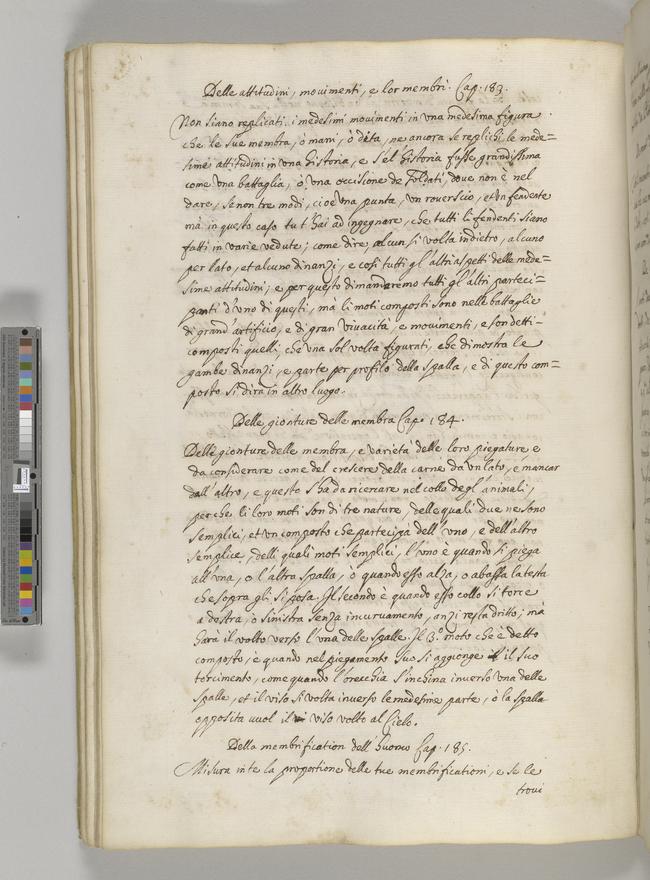 Delle attitudini, movimenti, e lor membri. Cap. 183.
Non siano replicati i medesimi movimenti in una medesima figura
che le sue membra, ò mani, ò dita, ne ancora se replichi le mede=
sime attitudini in una historia, e s'el historia fusse grandissima
come una battaglia, ò, una occisione de soldati, dove non è nel
dare, se non tre modi, cioè una punta, un roverscio, et un fendente
mà in questo caso tu t'hai ad ingegnare, che tutti li fendenti sieno
fatti in varie vedute; come dire, alcun si volta indietro, alcuno
per lato, et alcuno dinanzi, e così tutti gl'altri aspetti delle mede=
sime attitudini; e per questo dimandaremo tutti gl'altri parteci=
panti d'uno di questi, mà li moti composti sono nelle battaglie
di grand'artificio, e di gran vivacità, e movimenti, e son detti
composti quelli, che una sol volta figurati, ehe dimostra le
gambe dinanzi, e parte per profilo della spalla, e di questo com=
posto si dirà in altro luogo.
Delle gionture delle membra Cap. 184.
Delle gionture delle membra, e varietà delle loro piegature, e
da considerare come del crescere della carne da un lato, e mancar
dall'altro, e questo s'ha da ricercare nel collo degl'animali,
perche li loro moti son di tre nature, delle quali due ne sono
semplici, et un composto che partecipa dell'uno, e dell'altro
semplice, delli quali moti semplici, l'uno è quando si piega
all'una, o l'altra spalla, ò quando esso alza, o abassa la testa
che sopra gli si posa. Il secondo è quando esso collo si torce
a destra, o sinistra senza incurvamento, anzi resta dritto; mà
harà il volto verso l'una delle spalle. Il 3.º moto che è detto
composto, è quando nel piegamento suo si aggionge il suo
torcimento, come quando l'orecchia s'inchina inverso una delle
spalle, et il viso si volta inverso le medesime parte, ò la spalla
opposita uuol il viso volto al Cielo.
Della membrification dell'huomo Cap. 185.
Misura in te la proportione delle tue membrificationi, e se le
trovi